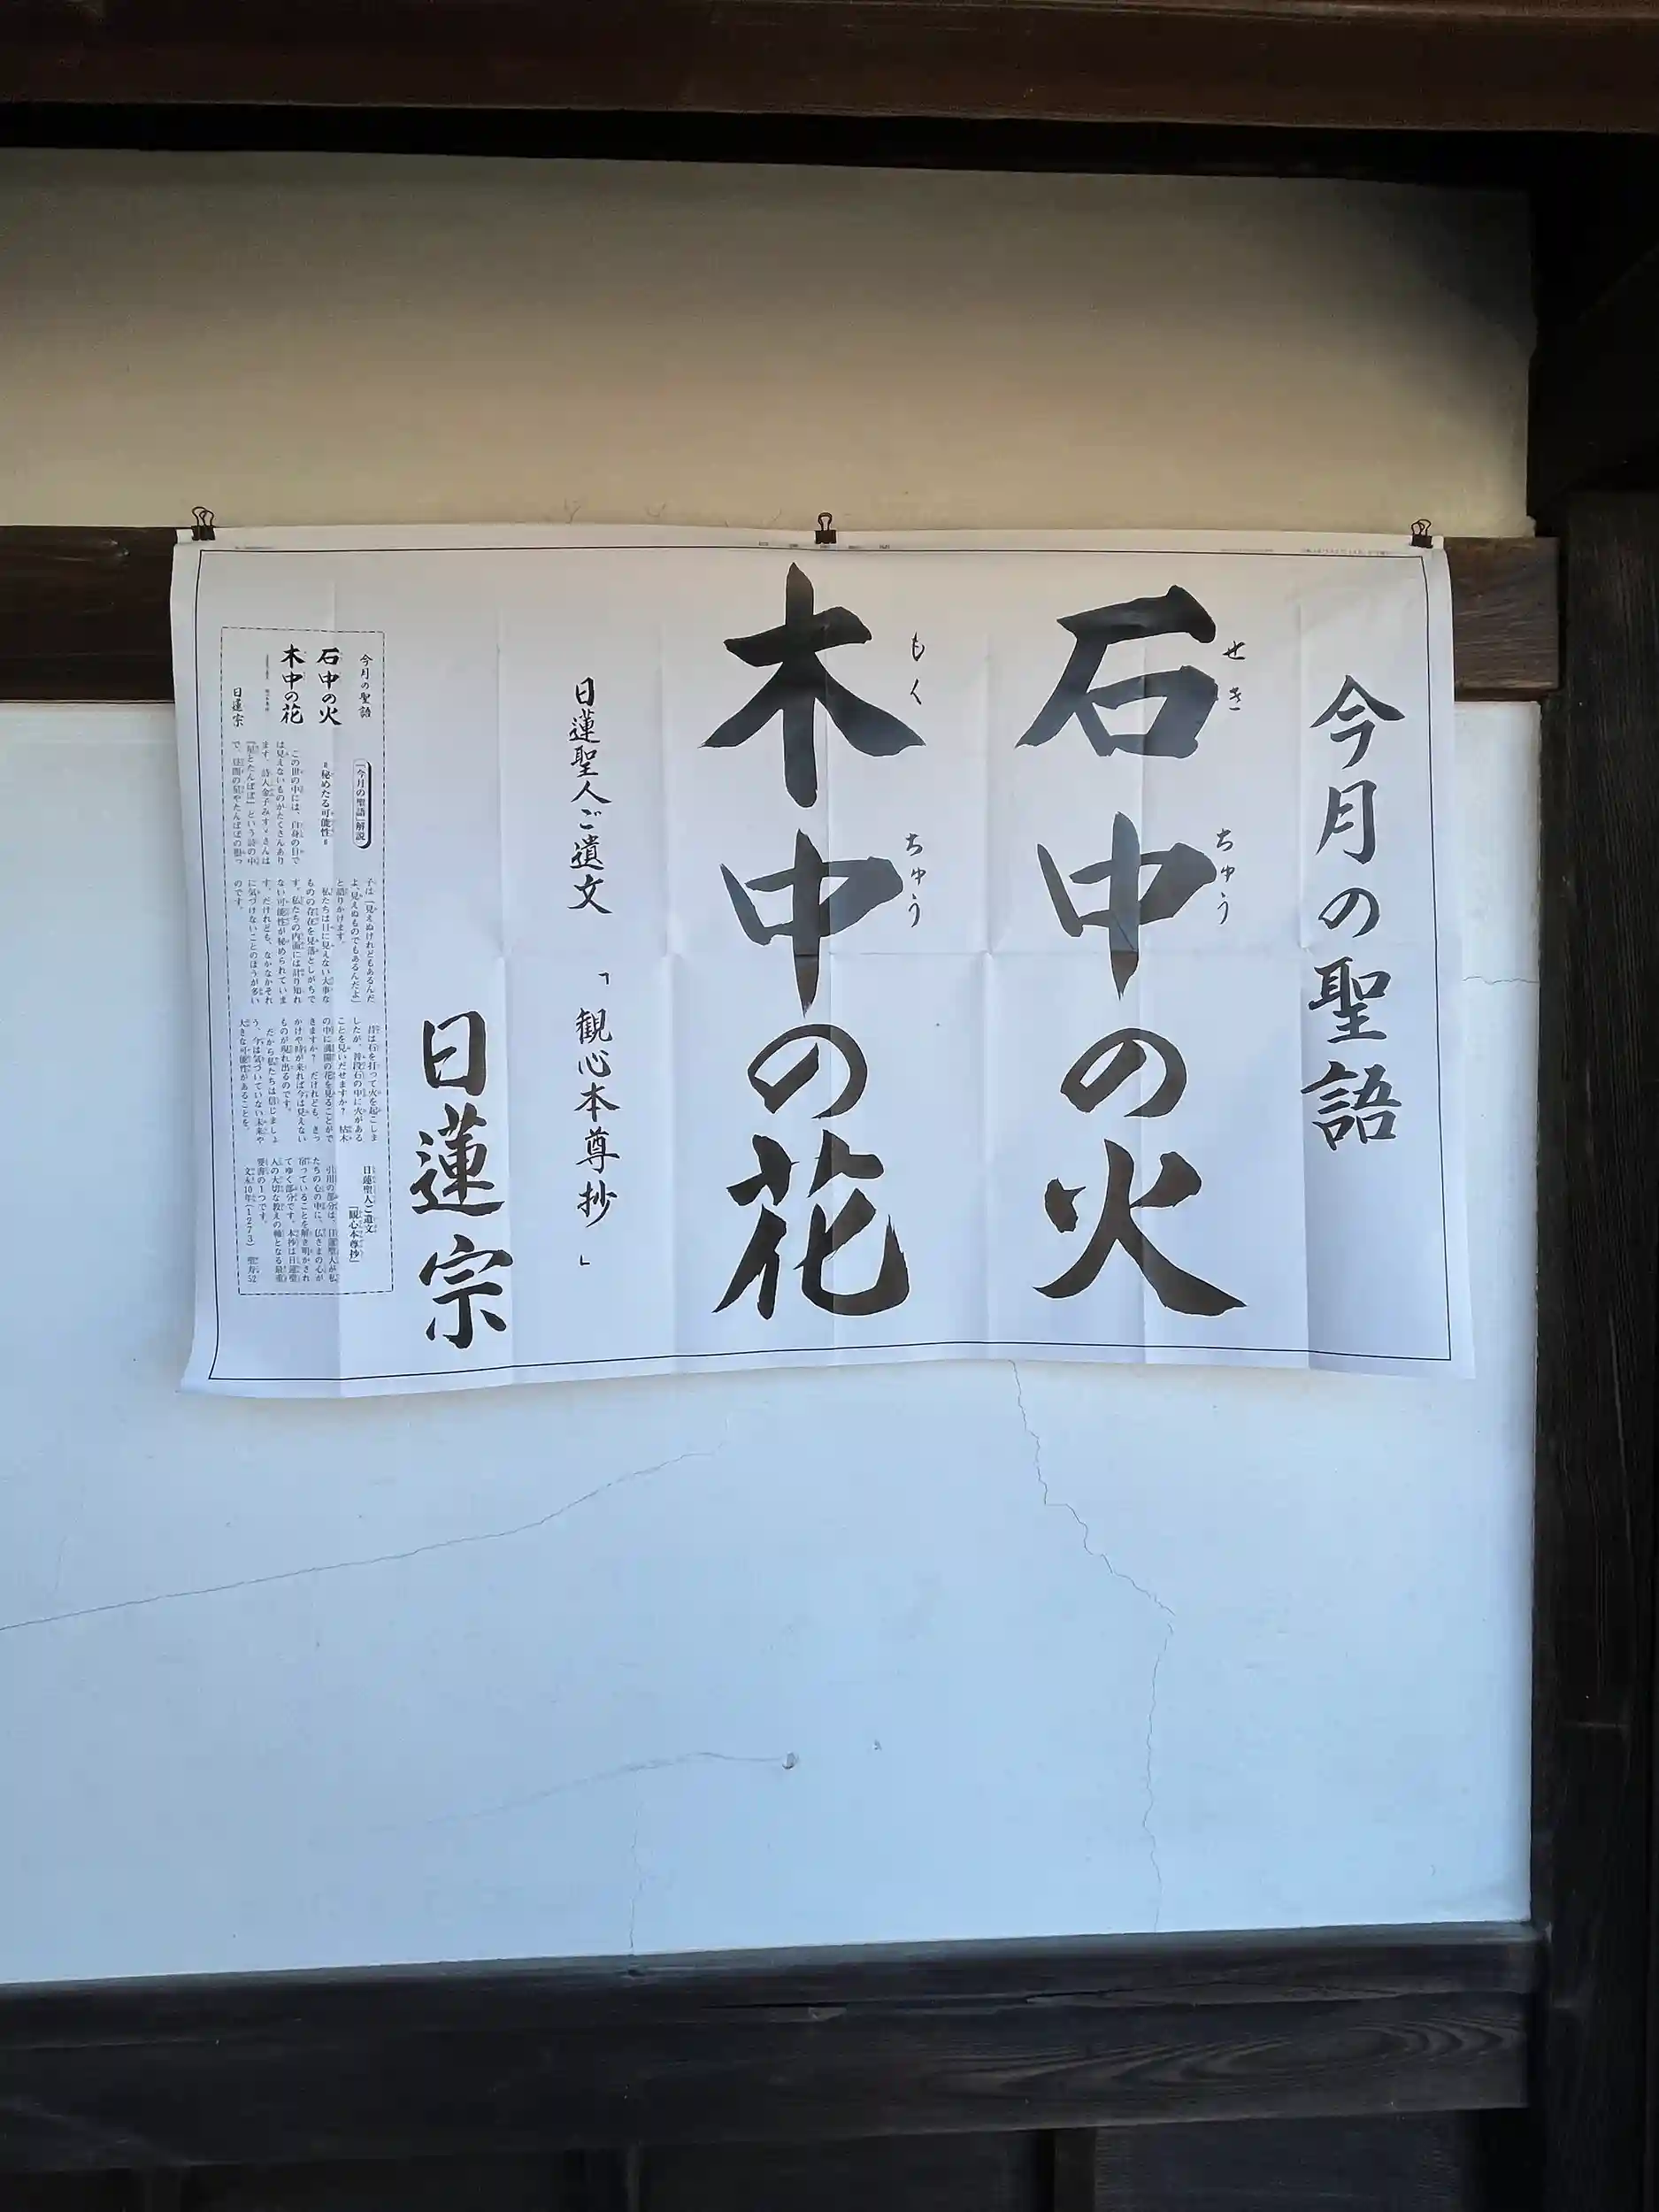 今月の聖語
石中の火
せき ちゅう
木中の花
もく ちゅう
日蓮聖人ご遺文 「観心本尊抄」
日蓮宗
今月の聖語
石中の火
木中の花
日蓮宗
「今月の聖語」解説
＝秘めたる可能性＝
この世の中には、自身の目で
は見えないものがたくさんあり
ます。詩人金子みすゞさんは
『星とたんぽぽ』という詩の中
で、昼間の星やたんぽぽの
子は「見えぬけれどもあるんだ
よ、見えぬものでもあるんだよ」
と語りかけます。
私たちは目に見えない大事な
ものの存在を見落としがちで
す。私たちの内面には計り知れ
ない可能性が秘められていま
す。だけれども、なかなかそれ
に気づけないことのほうが多い
のです。
昔は石を打って火を起こしま
したが、普段石の中に火がある
ことを見いだせますか？ 枯木
の中に満開の花を見ることがで
きますか？ だけれども、きっ
かけや時が来れば今は見えない
ものが現れ出るのです。
だから私たちは信じましょ
う。今は気づいていない未来や
大きな可能性があることを。
日蓮聖人ご遺文
「観心本尊抄」
引用の部分は、日蓮聖人が私
たちの心の中に、仏さまの心が
宿っていることを解き明かされ
てゆく部分です。本抄は日蓮聖
人の大切な教えの軸となる最重
要書の1つです。
文永10年（1273） 聖寿52